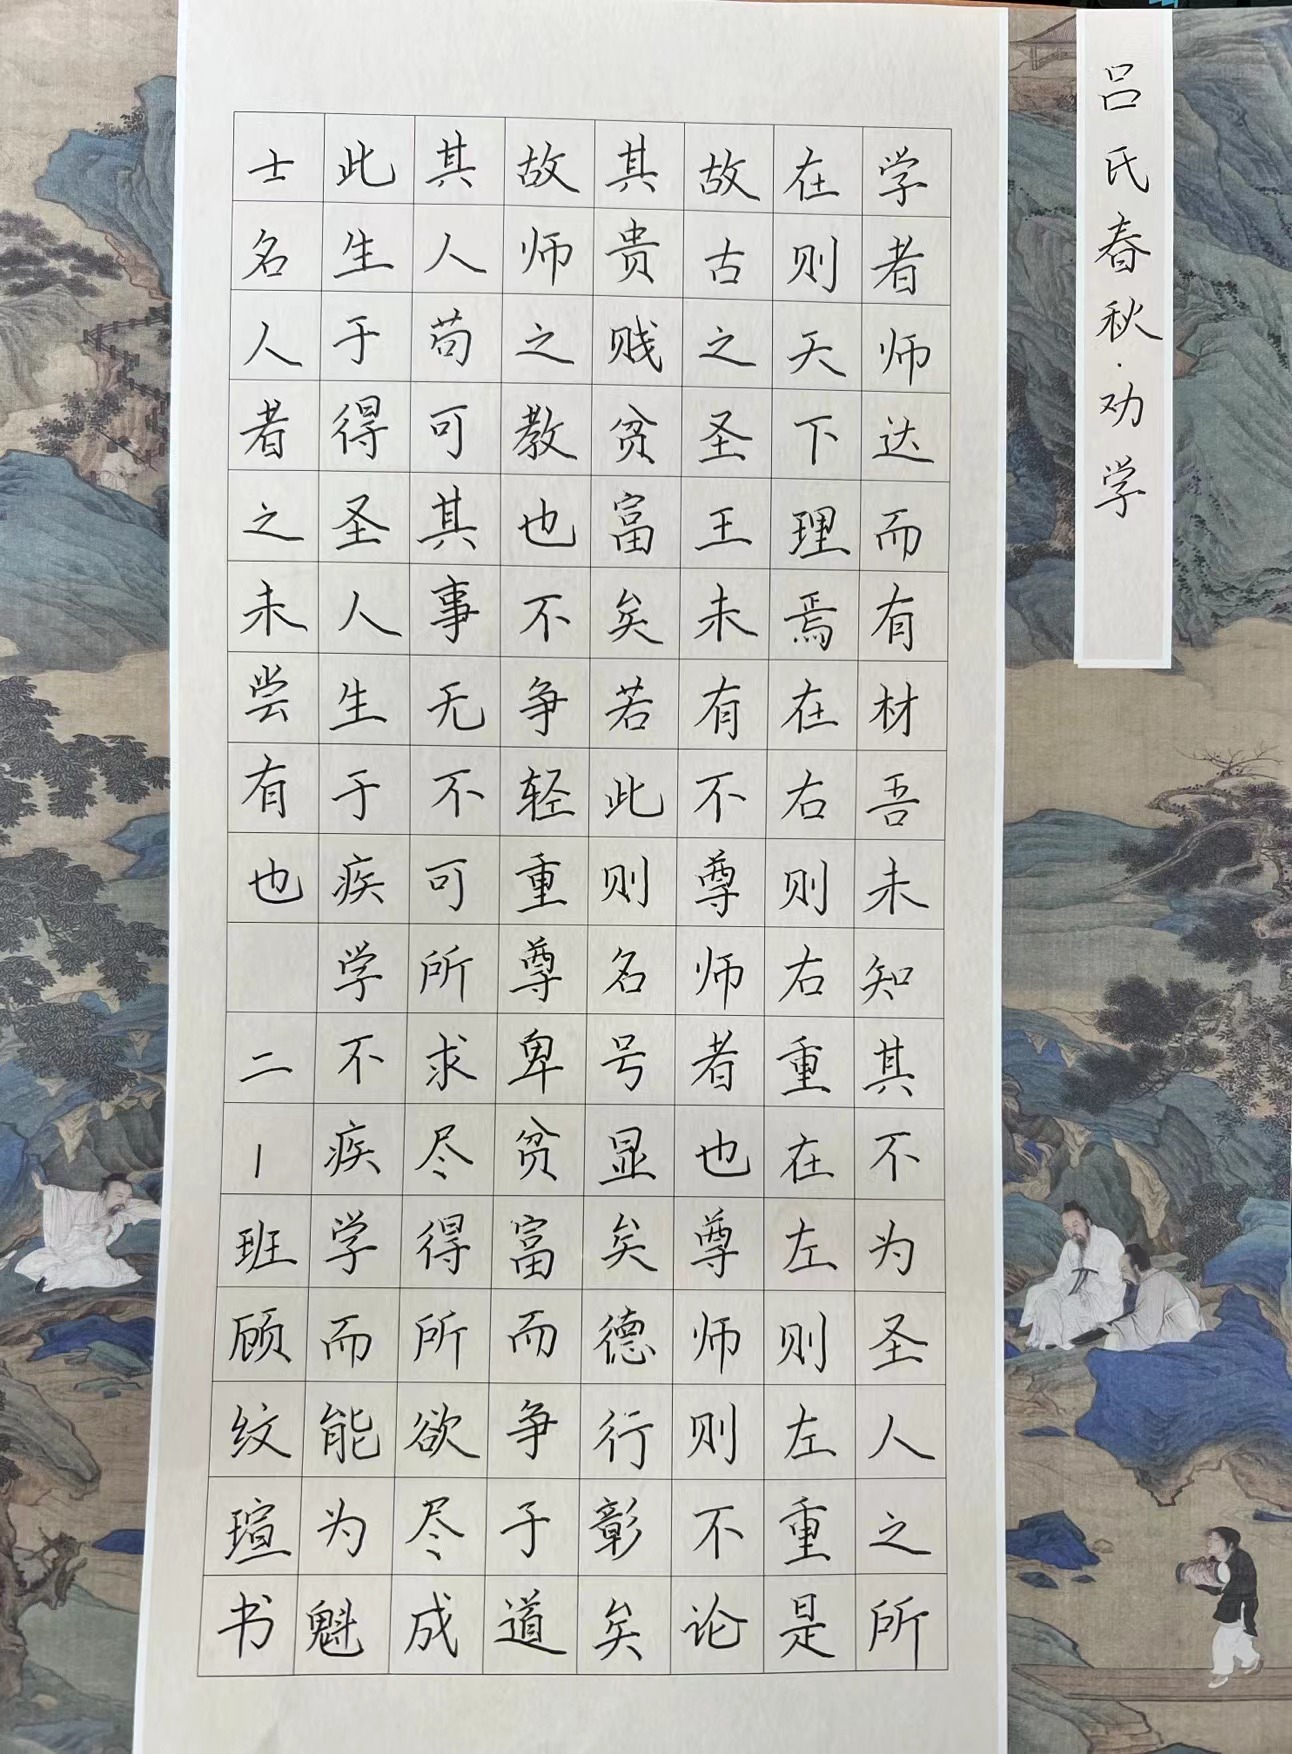 吕氏春秋·劝学
学者师达而有材吾未知其不为圣人之所
在则天下理焉在右则右重在左则左重是
故古之圣王未有不尊师者也尊师则不论
其贵贱贫富矣若此则名号显矣德行彰矣
故师之教也不争轻重尊卑贫富而争于道
其人苟可其事无不可所求尽得所欲尽成
此生于得圣人生于疾学不疾学而能为魁
士名人者之未尝有也 二1班顾纹瑄书